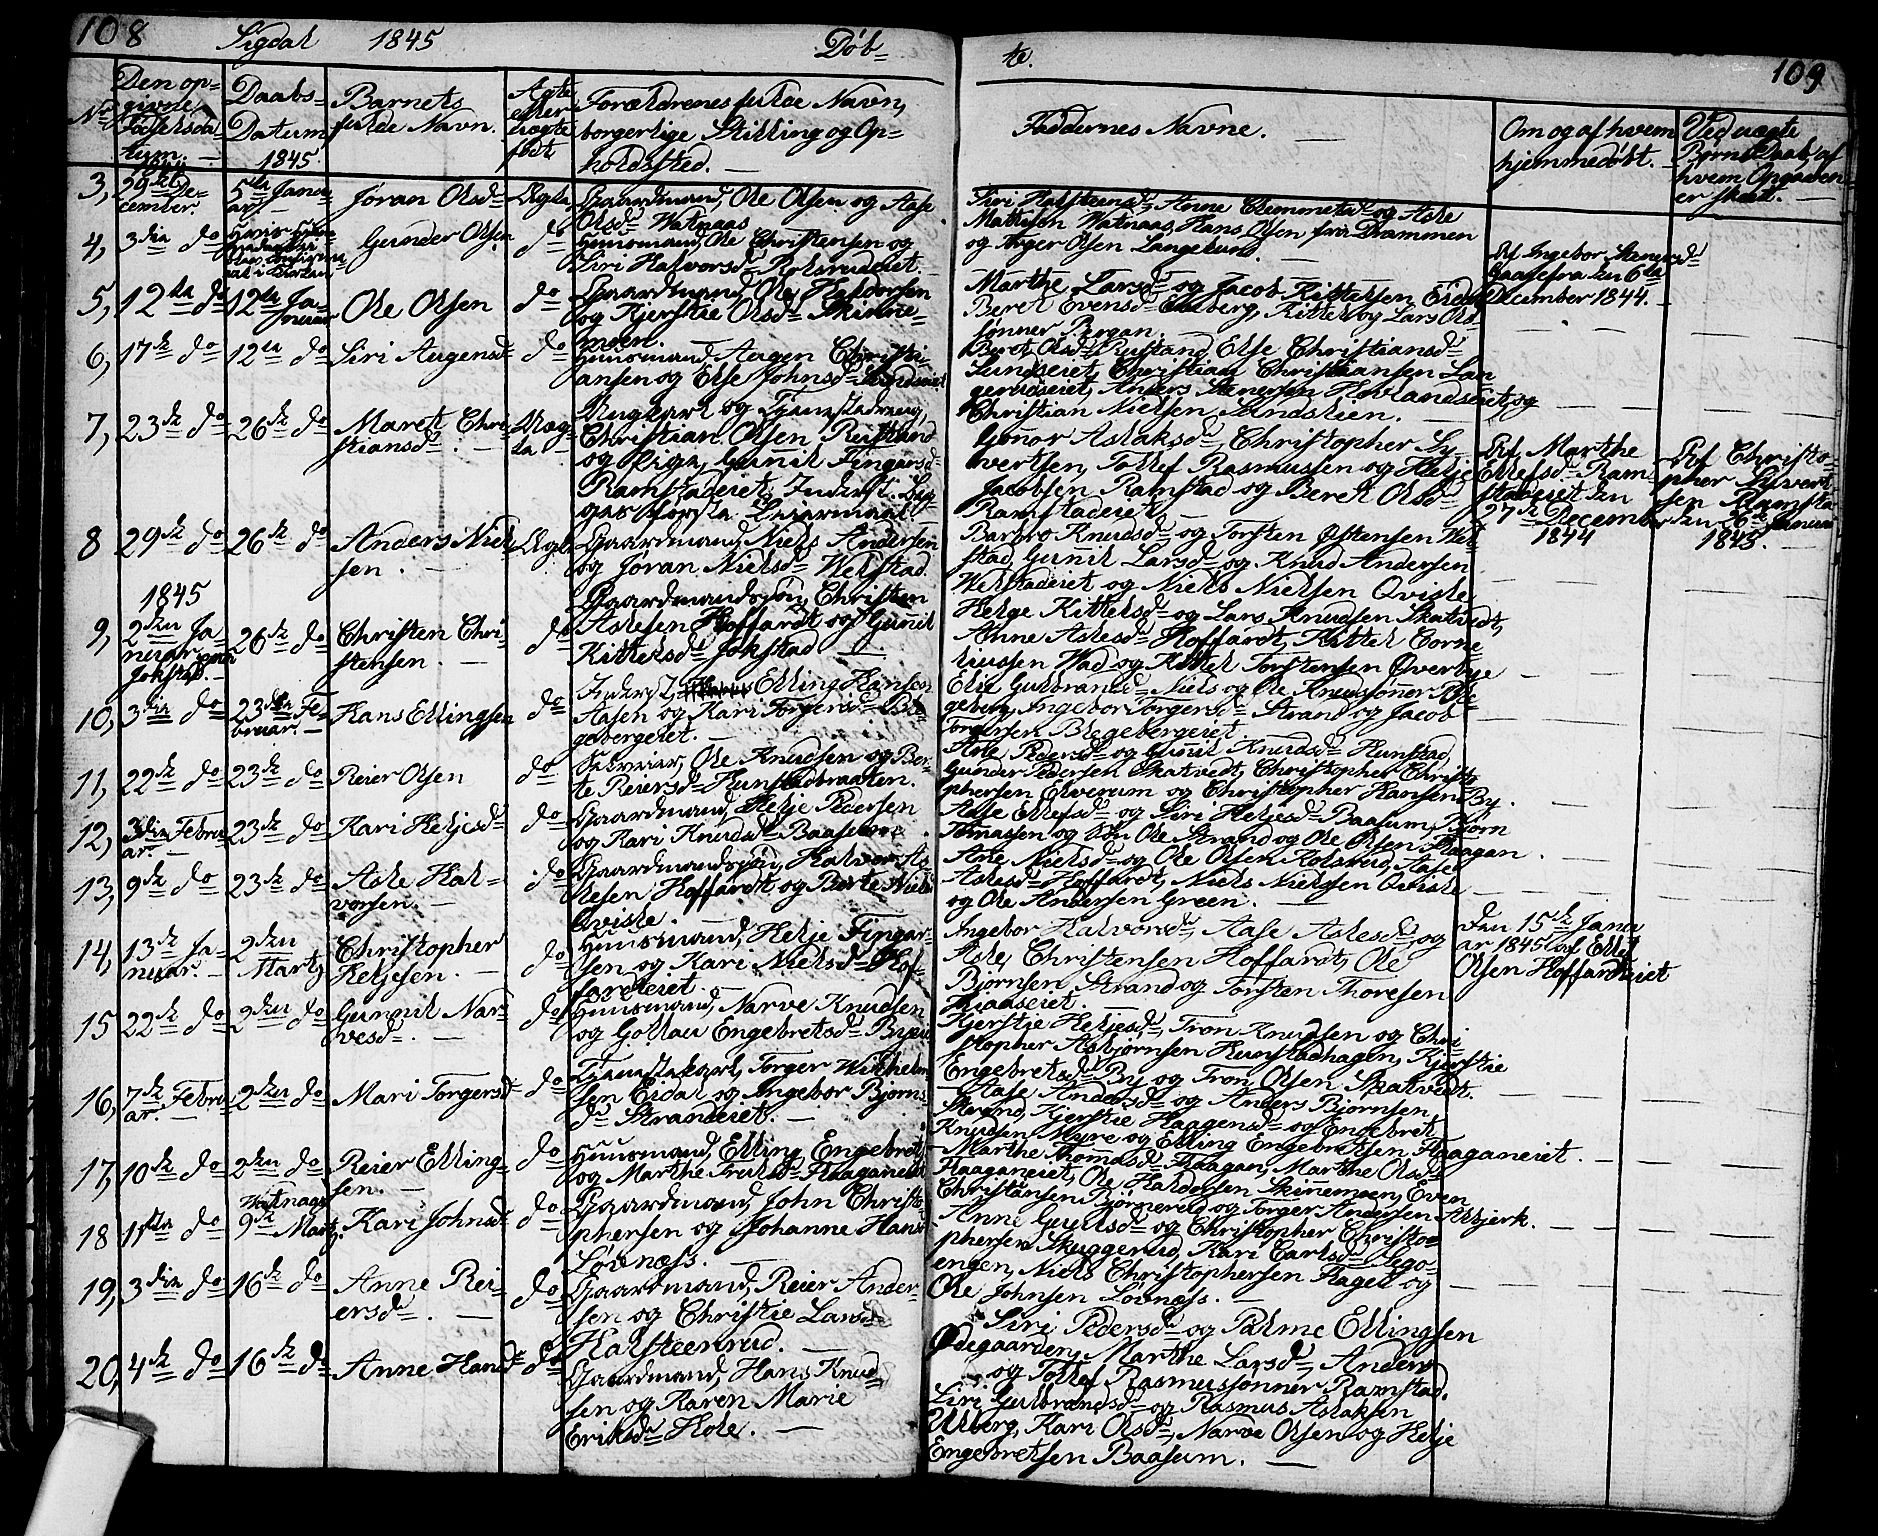 108 Sigdal 1845 Døb-
te. 109
No
Den op-
givne
Fødselsda-
tum.
Daabs-
Datum
1845
Barnets
fulde Navn.
Ægte
eller
uægte
født
Forældrenes fulde Navn,
borgerlige Stilling og Op-
holdssted.
Faddernes Navne.
Om og af hvem
hjemmedøbt.
Ved uægte
Børns Daab, af
hvem Opgaven
er skeet.
3, 29de De-
cember.
5te Janu-
ar.
Jøran Olsdr
Ægte
Gaardmand, Ole Olsen og Aase
Olsdr Watnaas
Siri Halsteensdr, Anne Clemmetsdr og Aste
Mattisen Watnaas, Hans Olsen fra Drammen
og Asger Olsen Langelund.
4, 3die do
Gunder Olsen
do
Huusmand, Ole Christensen og
Siri Halvorsdr Kolsrudeiet.
Marthe Larsdr og Jacob Kittelsen Eidal
Beret Evensdr Enberg, Kittel og Lars Ols-
sønner Bergan.
Af Ingebor Stenersdr
Gaasefra den 6te
December 1844.
5, 12te do
12te Ja-
nuar
Ole Olsen
do
Gaardmand, Ole Halvorsen
og Kjerstie Olsdr Skinne-
moen.
Beret Olsdr Rustand, Else Christiansdr
Lundseiet, Christian Christiansen Lan-
gerudseiet, Anders Stenersen Hovlandseiet, og
Christian Nielsen Lindsteen.
6, 17de do
12te do
Siri Augensdr
do
Huusmand, Augen Christi-
ansen og Else Johnsdr Lundseiet
7, 23de do
26de do
Maret Chri-
stiansdr.
Uæg-
te
Ungkarl og Tjenestedreng,
Christian Olsen Rustand
og Pige, Gunil Fingarsdr
Ramstadeiet, Inderst. Be-
ges første Leiermaal.
Gonor Aslaksdr, Christopher Sy-
vertsen, Tollef Rasmussen og Helje
Jacobsen Ramstad og Beret Olsdr
Ramstadeiet.
Af Marthe
Ellefsdr Ram-
stadeiet den
27de December
1844
Af Christo-
pher Syvert-
sen Ramstad
den 26de Januar
1845.
8 29de do
26de do
Anders Niel-
sen.
Ægte
Gaardmand, Niels Andersen
og Jøran Nielsdr Welstad.
Barbro Knudsdr og Torsten Østensen Wel-
stad, Gunil Larsdr og Knud Andersen
Welstadeiet og Niels Nielsen Qvisle
1845
9, 2den Ja-
nuar paa
Jokstad.
26de do
Christen Chri-
stensen.
do
Gaardmandssøn, Christen
Aslesen Hoffardt og Gunil
Kittelsdr Jokstad
Helge Kittelsdr og Lars Knudsen Skatvedt,
Anne Aslesdr Hoffardt, Kittel Corne-
liussen Wad og Kittel Torstensen Øverbye
10, 3die do
23de Fe-
bruar.
Hans Ellingsen
do
Inderst, Elling Hansen
Aasen og Kari Torgersdr Ble-
gebergeiet.
Elie Gulbrandsdr Niels og Ole Knudssønner Ble-
geberg, Ingebor Torgersdr Strand og Jacob
Torgersen Blegebergeiet.
11, 22de do
23de do
Reier Olsen
do
Selveier, Ole Knudsen og Ber-
te Reiersdr Hunstadbraaten.
Ane Pedersdr og Gunil Knudsdr Hunstad,
Gunder Pedersen Skatvedt, Christopher Christo-
phersen Elverum og Christopher Hansen By.
12, 3die Febru-
ar.
23de do
Kari Heljesdr
do
Gaardmand, Helje Pedersen
og Kari Knudsdr Baasum.
Aase Ellefsdr og Siri Heljesdr Baasum, Bjørn
Tomassen og Søn Ole Strand og Ole Olsen Haagan.
13, 9de do
23de do
Asle Hal-
vorsen.
do
Gaardmandssøn, Halvor As-
lesen Hoffardt og Berte Niels
Qvisle.
Ane Nielsdr og Ole Olsen Kolsrud, Aase
Aslesdr Hoffardt, Niels Nielsen Qvisle
og Ole Andersen Green.
14, 13de Ja-
nuar.
2den
Marts
Christopher
Heljesen.
do
Huusmand, Helje Fingar-
sen og Kari Nielsdr Hof-
fardteiet.
Ingebor Halvorsdr, Aase Aslesdr og
Asle Christensen Hoffardt, Ole
Bjørnsen Strand og Torsten Thoresen
Den 15de Janu-
ar 1845 af Ellef
Olsen Hoffardteiet
15 22de do
2den do
Gunnil Nar-
vesdr.
do
Huusmand, Narve Knudsen
og Gollau Engebretsdr Byeiet
Kjerstie Heljesdr, Tron Knudsen og Chri-
stopher Asbjørnsen Hunstadhagen, Kjerstie
Engebretsdr By og Tron Olsen Skatvedt.
16, 7de Febru-
ar.
2den do
Mari Torgersdr
do
Tjenestekarl, Torger Wilhelm-
sen Eidal og Ingebor Bjørns-
dr Strandeiet.
Aase Andersdr og Anders Bjørnsen
Strand, Kjerstie Haagensdr og Engebret
Knudsen Myre og Elling Engebretsen Haaganeiet.
17, 10de do
2den do
Reier Elling-
sen.
do
Huusmand, Elling Engebretsen
og Marthe Trulsdr Haaganeiet
Marthe Thomasdr Haagan, Marthe Olsdr
Haaganeiet, Ole Halvorsen Skinnemoen, Even
Christansen Bjørnerud og Torger Andersen Asbjerk.
18 11te do
Watnaas
9de Marts.
Kari Johnsdr
do
Gaardmand, John Christo-
phersen og Johanne Hansdr
Løvnæss.
Anne Gulsdr og Christopher Christo-
phersen Skuggerud, Kari Carlsdr Lego-
engen, Niels Christophersen Flagel og
Ole Johnsen Løvnæss.
19, 3die do
16de do
Anne Rei-
ersdr.
do
Gaardmand, Reier Ander-
sen og Christie Larsdr
Halsteenrud.
Siri Pedersdr og Palme Ellingsen
Ødegaarden, Marthe Larsdr, Anders
og Tollef Rasmussønner Ramstad.
20, 4de do
16de do
Anne Hansdr
do
Gaardmand, Hans Knud-
sen og Karen Marie
Eriksdr Hole.
Siri Gulbrandsdr og Rasmus Aslaksen
Ulberg, Kari Olsdr, Narve Olsen og Helje
Engebretsen Baasum.